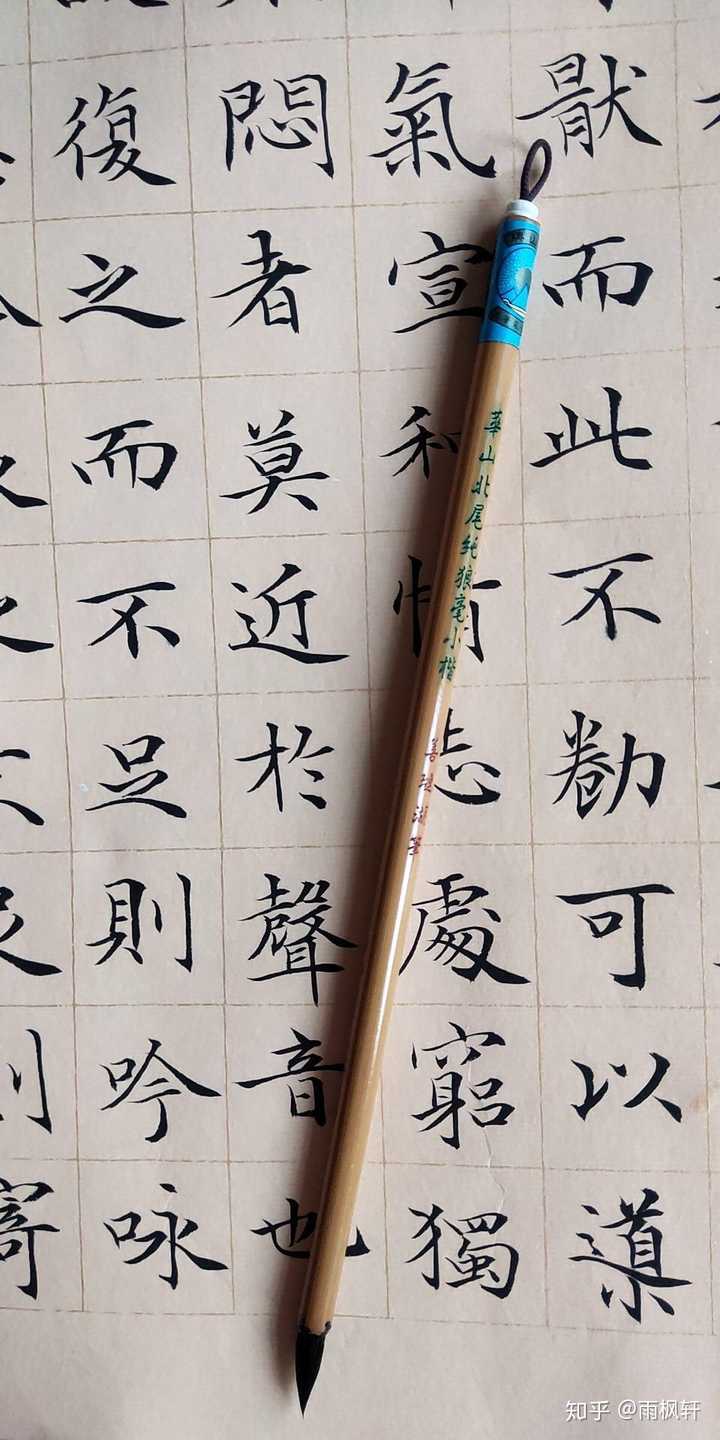 猒而此不勌可以導
氣宣和情志處窮獨
悶者莫近於聲音也
復之而不足則吟咏
足則寄
華山北尾纯狼毫小楷
知乎 @雨枫轩